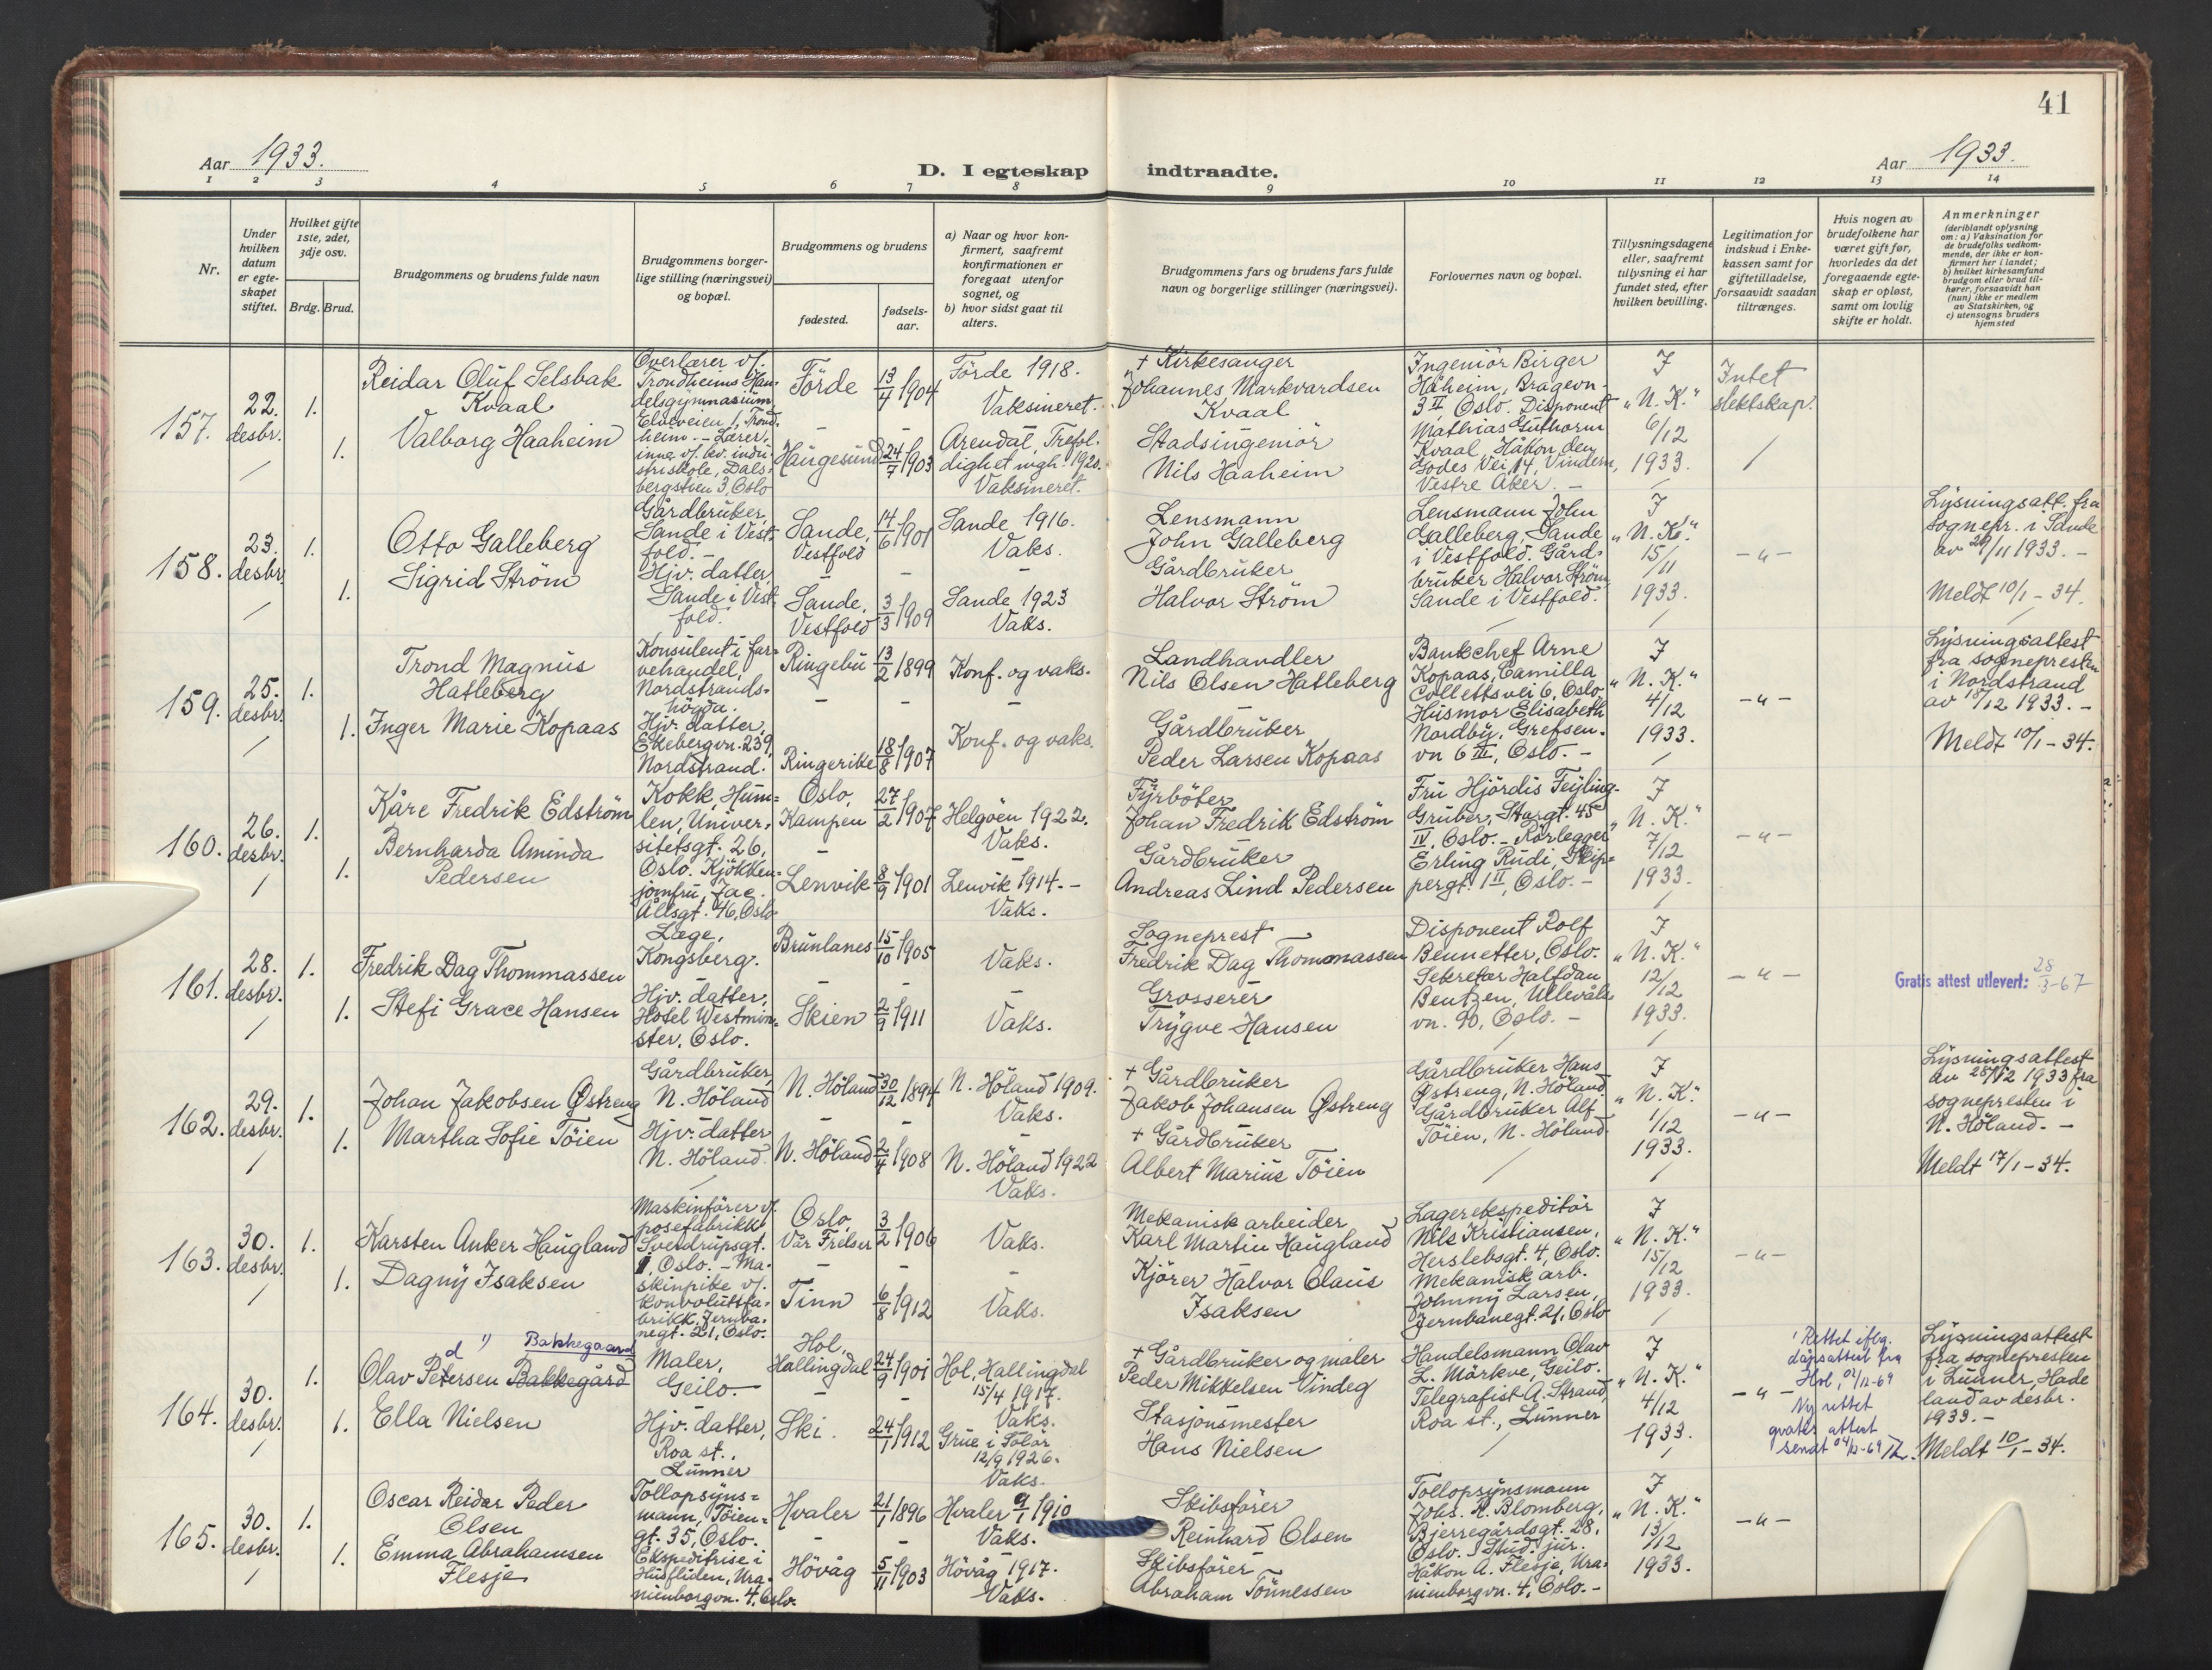 41
Aar 1933.
D. I egteskap indtraadte.
Aar 1933.
1 2 3 4 5 6 7 8 9 10 11 12 13 14
Nr.
Under hvilken datum er egteskapet stiftet.
Hvilket gifte 1ste, 2det, 3dje osv.
Brdg. Brud.
Brudgommens og brudens fulde navn
Brudgommens borgerlige stilling (næringsvei) og bopæl.
Brudgommens og brudens
fødested.
fødselsaar.
a) Naar og hvor konfirmert, saafremt konfirmationen er foregaat utenfor sognet, og
b) hvor sidst gaat til alters.
Brudgommens fars og brudens fars fulde navn og borgerlige stillinger (næringsvei).
Forlovernes navn og bopæl.
Tillysningsdagene eller, saafremt tillysning ei har fundet sted, efter hvilken bevilling.
Legitimation for indskud i Enkekassen samt for giftetilladelse, forsaavidt saadan tiltrænges.
Hvis nogen av brudefolkene har været gift før, hvorledes da det foregaaende egteskap er opløst, samt om lovlig skifte er holdt.
Anmerkninger (deriblandt oplysning om: a) Vaksination for de brudefolks vedkommende, der ikke er konfirmert her i landet; b) hvilket kirkesamfund brudgom eller brud tilhører, forsaavidt han (hun) ikke er medlem av Statskirken, og c) utensogns bruders hjemsted
157.
22. desbr.
1.
1.
Reidar Oluf Selsbak
Kvaal
Valborg Haaheim
Overlærer v/.
Trondheims Handelsgymnasium,
Elveveien 1, Trondheim. - Lærerinne v/. kv. industriskole, Dalsbergstien 3, Oslo
Förde 13/4 1904
Haugesund 24/7 1903
Förde 1918.
Vaksineret.
Arendal, Trefoldighet mgh. 1920.
Vaksineret.
+ Kirkesanger
Johannes Markvardsen
Kvaal
Stadsingeniör
Nils Haaheim
Ingeniör Birger
Haheim, Bragevn.
3 II, Oslo. Disponent
Mathias Guthorm
Kvaal, Håkon den
Godes Vei 14, Vindern,
Vestre Aker. -
I
"N. K."
6/12
1933.
Intet
slektskap.
158.
23. desbr.
1.
1.
Otto Galleberg
Sigrid Ström
Gårdbruker,
Sande i Vestfold. -
Hjv. datter,
Sande i Vestfold.
Sande, Vestfold 14/6 1901
Sande, Vestfold 3/3 1909
Sande 1916.
Vaks.
Sande 1923
Vaks.
Lensmann
John Galleberg
Gårdbruker
Halvor Ström
Lensmann John
Galleberg, Sande
i Vestfold. Gårdbruker Halvor Ström
Sande i Vestfold.
I
"N. K."
15/11
1933.
- " -
Lysningsatt. fra
sognepr. i Sande
av 29/11 1933. -
Meldt 10/1 - 34.
159.
25. desbr.
1.
1.
Trond Magnus
Hatleberg
Inger Marie Kopaas
Konsulent i farvehandel,
Nordstrandshögda.
Hjv. datter,
Ekebergvn. 239,
Nordstrand.
Ringebu 13/2 1899
Ringerike 18/8 1907
Konf. og vaks.
Konf. og vaks.
Landhandler
Nils Olsen Hatleberg
Gårdbruker
Peder Larsen Kopaas
Bankchef Arne
Kopaas, Camilla
Collettsvei 6, Oslo.
Husmor Elisabeth
Nordby, Grefsenvn 6 III, Oslo. -
I
"N. K."
4/12
1933.
- " -
Lysningsattest
fra sognepresten
i Nordstrand
av 18/12 1933. -
Meldt 10/1 - 34.
160.
26. desbr.
1.
1.
Kåre Fredrik Edström
Bernharda Aminda
Pedersen
Kokk, Humlen, Universitetsgt. 26,
Oslo. Kjökkenjomfru, Jac.
Ållsgt. 46, Oslo
Oslo, Kampen 27/2 1907
Lenvik 8/9 1901
Helgöen 1922.
Vaks.
Lenvik 1914. -
Vaks.
Fyrböter
Johan Fredrik Edström
Gårdbruker
Andreas Lind Pedersen
Fru Hjördis Feyling-
Gruber, Storgt. 45
IV, Oslo. - Rörlegger
Erling Rudi, Skippergt. 1 II, Oslo. -
I
"N. K."
7/12
1933.
- " -
161.
28. desbr.
1.
1.
Fredrik Dag Thommassen
Stefi Grace Hansen
Læge,
Kongsberg.
Hjv. datter,
Hotel Westminster, Oslo.
Brunlanes 15/10 1905
Skien 2/9 1911
Vaks.
Vaks.
Sogneprest
Fredrik Dag Thommassen
Grosserer
Trygve Hansen
Disponent Rolf
Bennetter, Oslo.
Sekretær Halfdan
Bentzen, Ullevålsvn. 90, Oslo. -
I
"N. K."
12/12
1933.
- " -
Gratis attest utlevert: 28/3-67
162.
29. desbr.
1.
1.
Johan Jakobsen Østreng
Martha Sofie Töien
Gårdbruker,
N. Höland
Hjv. datter
N. Höland.
N. Höland 30/12 1894
N. Höland 2/4 1908
N. Höland 1909.
Vaks.
N. Höland 1922
Vaks.
+ Gårdbruker
Jakob Johansen Østreng
+ Gårdbruker
Albert Marius Töien
Gårdbruker Hans
Østreng, N. Höland.
Gårdbruker Alf
Töien, N. Höland.
I
"N. K."
1/12
1933.
- " -
Lysningsattest
av 28/12 1933 fra
sognepresten i
N. Höland. -
Meldt 17/1 - 34.
163.
30. desbr.
1.
1.
Karsten Anker Haugland
Dagny Isaksen
Maskinförer v/.
posefabrikk
Sverdrupsgt.
1, Oslo. - Maskinpike v/.
konvoluttfabrikk, Jernbanegt. 21, Oslo.
Oslo, Vår Frelser 3/2 1906
Tinn 6/8 1912
Vaks.
Vaks.
Mekanisk arbeider
Karl Martin Haugland
Kjörer Halvor Claus
Isaksen
Lagerekspeditör
Nils Kristiansen,
Herslebsgt. 4, Oslo.
Mekanisk arb.
Johnny Larsen,
Jernbanegt. 21, Oslo
I
"N. K."
15/12
1933.
- " -
164.
30. desbr.
1.
1.
d 1) Bakkegaard
Olav Petersen Bakkegård
Ella Nielsen
Maler,
Geilo. -
Hjv. datter,
Roa st.,
Lunner
Hol, Hallingdal 24/9 1901
Ski. 24/1 1912
Hol, Hallingdal
15/4 1917.
Vaks.
Grue i Solör
12/9 1926.
Vaks.
+ Gårdbruker og maler
Peder Mikkelsen Vindeg
Stasjonsmester
Hans Nielsen
Handelsmann Olav
L. Mörkve, Geilo.
Telegrafist A. Strand,
Roa st., Lunner
I
"N. K."
4/12
1933.
- " -
1 Rettet iflg.
dåpsattest fra
Hol, 04/12-69
Ny rettet
gratis attest
sendt 04/12-69
Lysningsattest
fra sognepresten
i Lunner, Hadeland av desbr.
1933. -
Meldt 10/1 - 34.
165.
30. desbr.
1.
1.
Oscar Reidar Peder
Olsen
Emma Abrahamsen
Flesje
Tollopsynsmann, Töiengt. 35, Oslo. -
Ekspeditrise i
Husfliden, Uranienborgvn. 4, Oslo.
Hvaler 21/1 1896
Hövåg 5/11 1903
Hvaler 9/1 1910
Vaks.
Hövåg 1917.
Vaks.
Skibsförer
Reinhard Olsen
Skibsförer
Abraham Tönnessen
Tollopsynsmann
Johs. R. Blomberg,
Bjerregårdsgt. 28,
Oslo. Stud. jur.
Håkon A. Flesje, Uranienborgvn. 4, Oslo. -
I
"N. K."
13/12
1933.
- " -